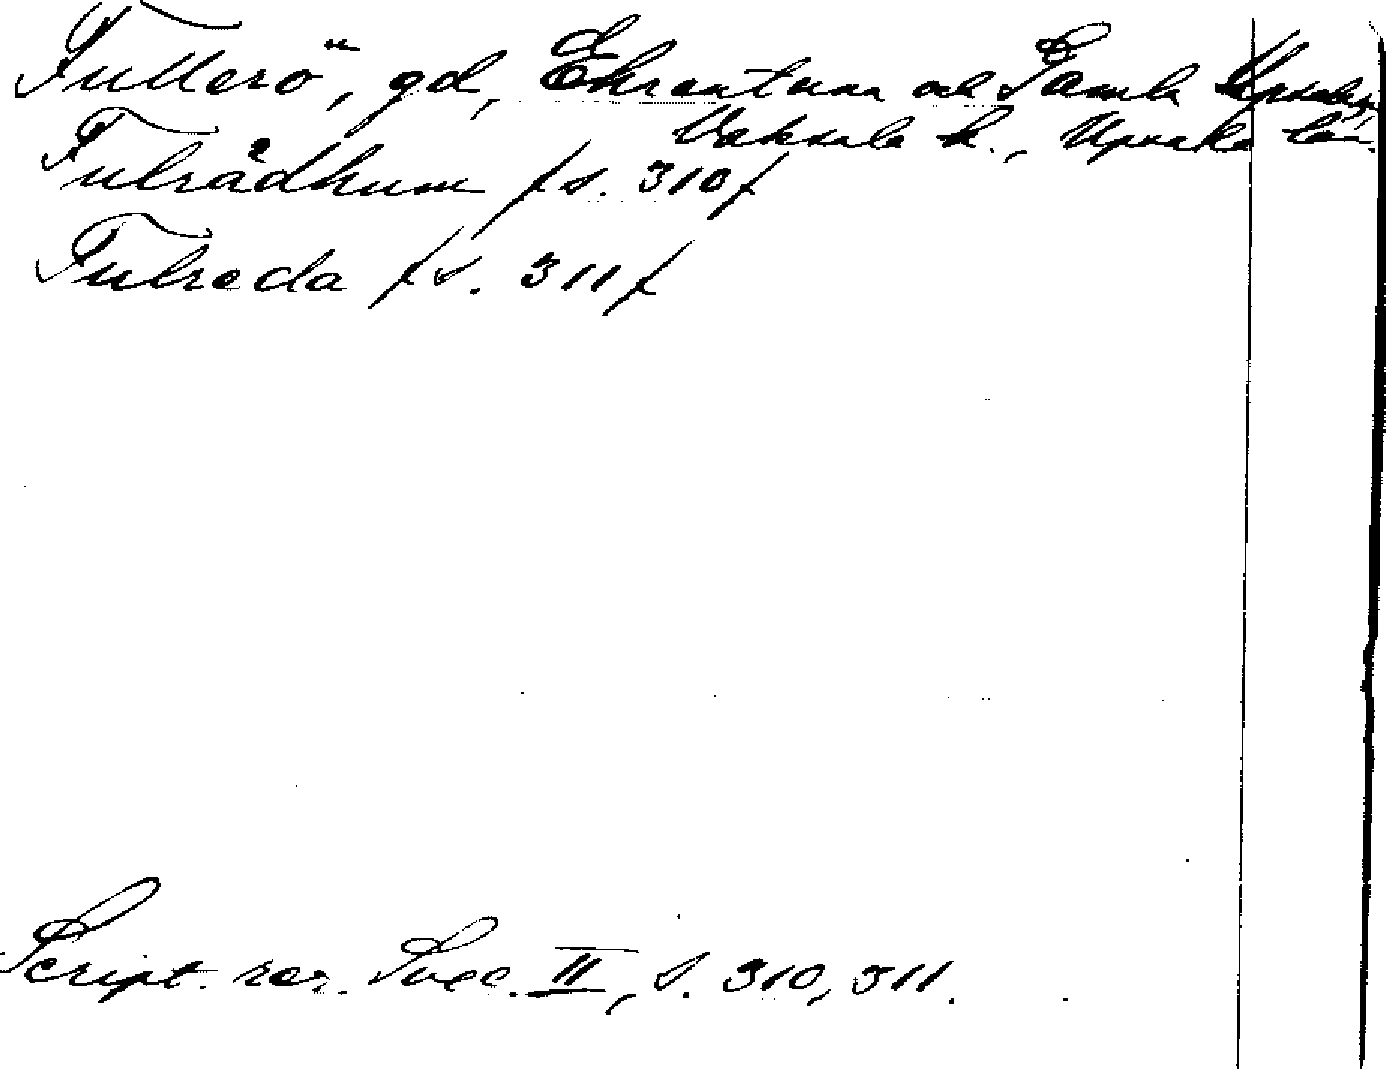 Fullerö, gd, Ekeantuna och Gamla Upsala,
Vaksala h., Upsala län.
Fulrådhum /s. 310/
Fulreda /s. 311/
Script. rer. Svec. II, s. 310, 311.